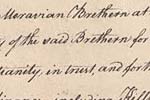 Moravian Brethern at
of the said Brethern for
ianity, in trust, and for th